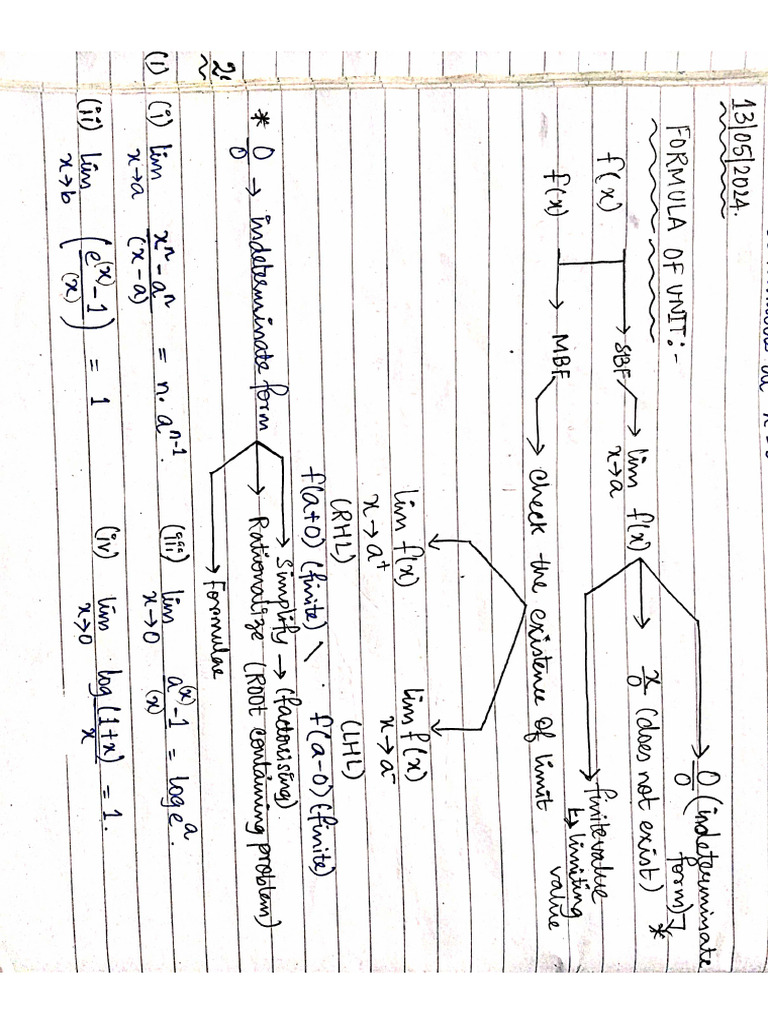 13/05/2024.
FORMULA OF UNIT:-
f(x) → SBF → lim x→a f(x) → 0/0 (indeterminate form) *
x/0 (does not exist)
finite value
↳ limiting value
f(x) → MBF → Check the existence of limit
lim f(x) x→a⁺ lim f(x) x→a⁻
(RHL) (LHL)
f(a+0) (finite) f(a-0) (finite)
* 0/0 → indeterminate form → Simplify → (factorising)
→ Rationalize (ROOT containing problem)
→ Formulae
2.
(1) (i) lim x→a (xⁿ-aⁿ)/(x-a) = n.aⁿ⁻¹. (iii) lim x→0 (a⁽ˣ⁾-1)/(x) = logeᵃ.
(ii) lim x→b ((e⁽ˣ⁾-1)/(x)) = 1 (iv) lim x→0 log(1+x)/x = 1.